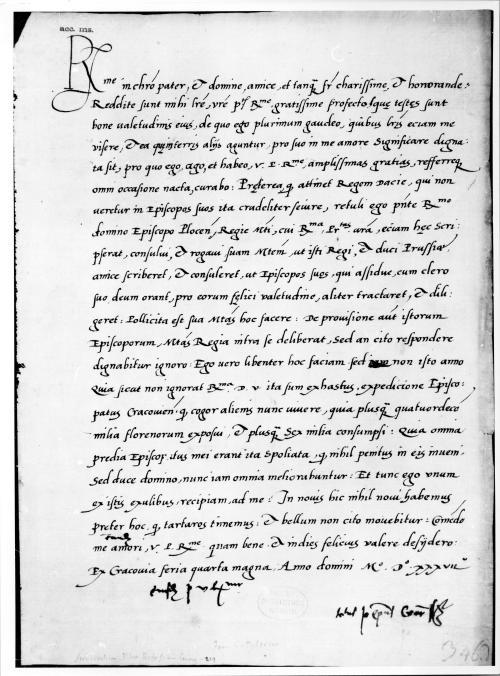 acc. ms.
R
me in chro pater, et domine, amice, et tanq fr charissime, et honorande.
Reddite sunt mihi lre, vre p. Rme gratissime profecto, que testes sunt
bone valetudinis eius, de quo ego plurimum gaudeo, quibus lris eciam me
visere, et ea que in terris alijs aguntur, pro suo in me amore significare digna
ta sit, pro quo ego, ago, et habeo, v. p. Rme, amplissimas gratias, refferreq
omni occasione nacta, curabo: Preterea q attinet Regem Dacie, qui non
veretur in Episcopos suos ita crudeliter sevire, retuli ego pnte Rmo
domino Episcopo Plocen, Regie Mti, cui Rma eciam hec scri
pserat, consului, et rogavi suam Mtem ut isti Regi, et duci Prussiae
amice scriberet, et consuleret, ut Episcopos suos, qui assidue cum clero
suo, deum orant, pro eorum felici valetudine, aliter tractaret, et dili
geret: Pollicita est sua Mtas hoc facere: De provisione aut istorum
Episcoporum, Mtas Regia intra se deliberat, sed an cito respondere
dignabitur ignoro: Ego vero libenter hoc faciam sed non isto anno
Quia sicut non ignorat Rma D. v ita sum exhastus, expedicione Episco
patus Cracovien, q, cogor alienis nunc vivere, quia plusq quatuordeci
milia florenorum exposui, et plusq sex milia consumpsi: Quia omnia
predia Episcopatus mei erant ita spoliata, q, nihil penitus in eis inveni
Sed duce domino, nunc iam omnia meliorabuntur: Et tunc ego unum
ex istis exulibus, recipiam, ad me: In novis hic nihil novi habemus
preter hoc, q, tartaros timemus: et bellum non cito movebitur: Comedo
me amori, v. p. Rme. quam bene et indies felicius valere desydero:
Ex Cracovia feria quarta magna, Anno domini Mo Do XXXVIIo